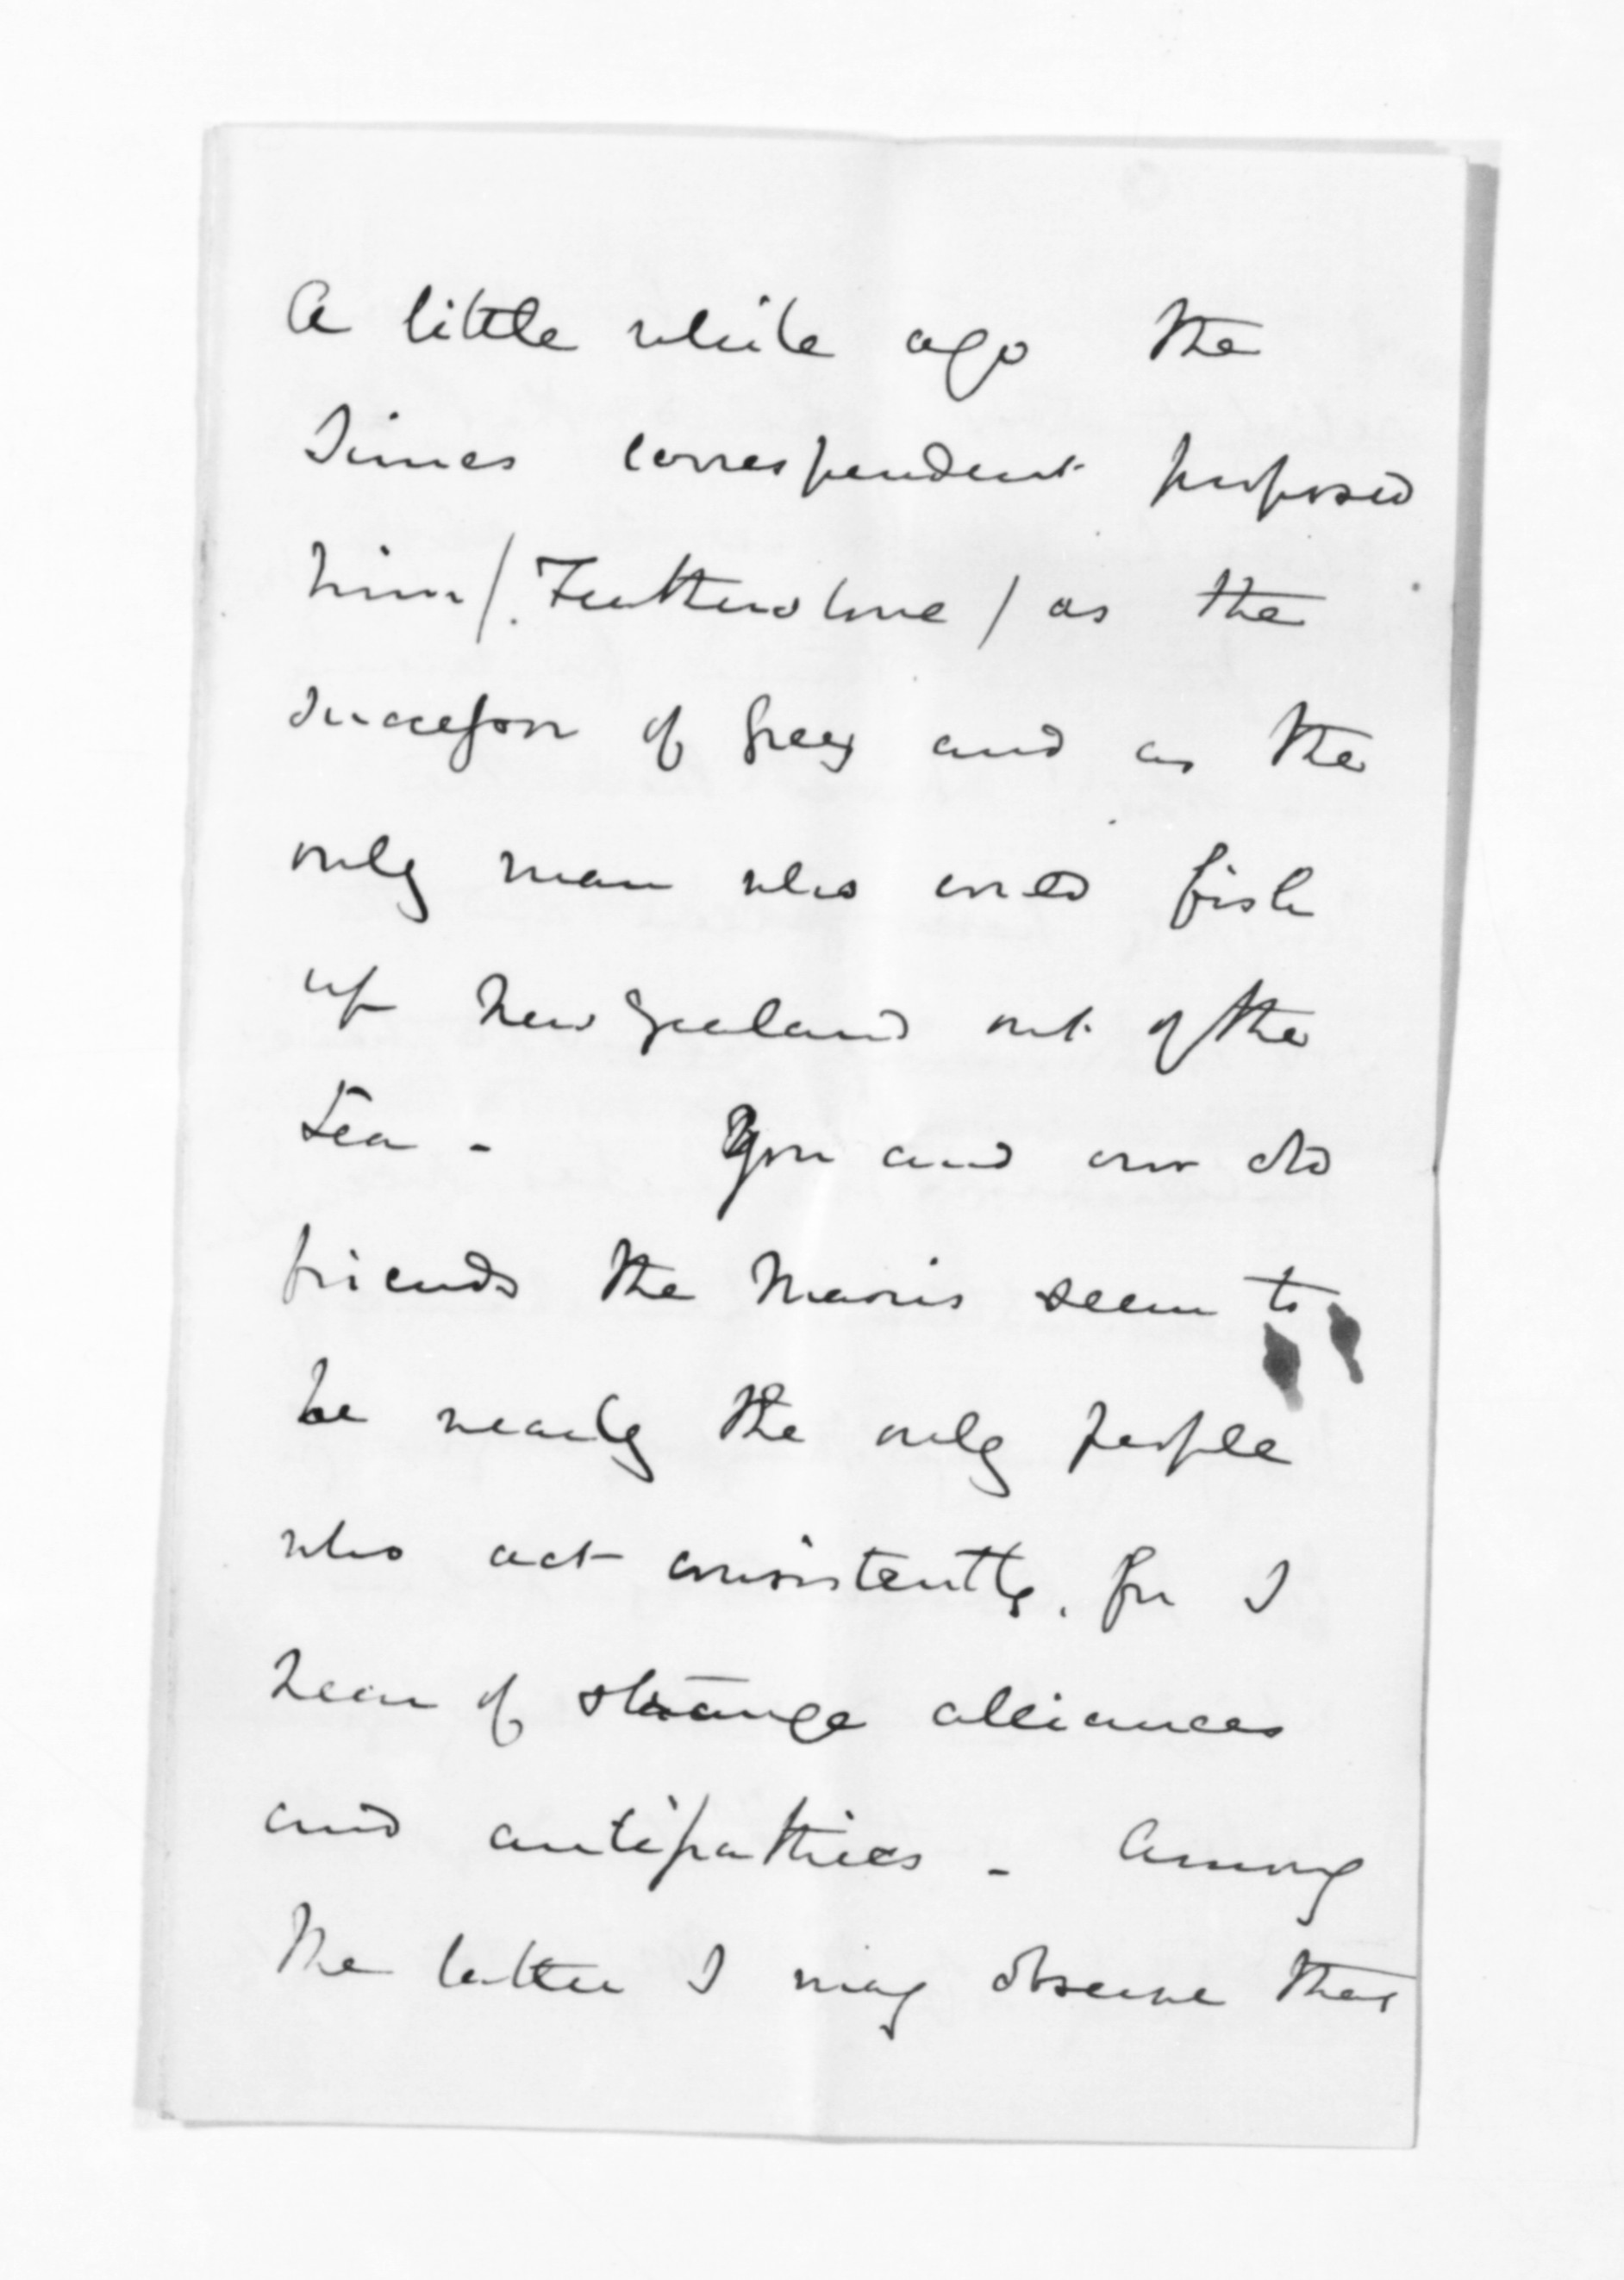 A little while ago the
Times correspondent proposed
him /. Featherstone / as the
successor of Grey and as the
only man who could fish
up New Zealand out of the
Sea - You and our old
friends the Maoris seem to
be nearly the only people
who act consistently. for I
hear of strange alliances
and antipathies - Among
the latter I may observe that